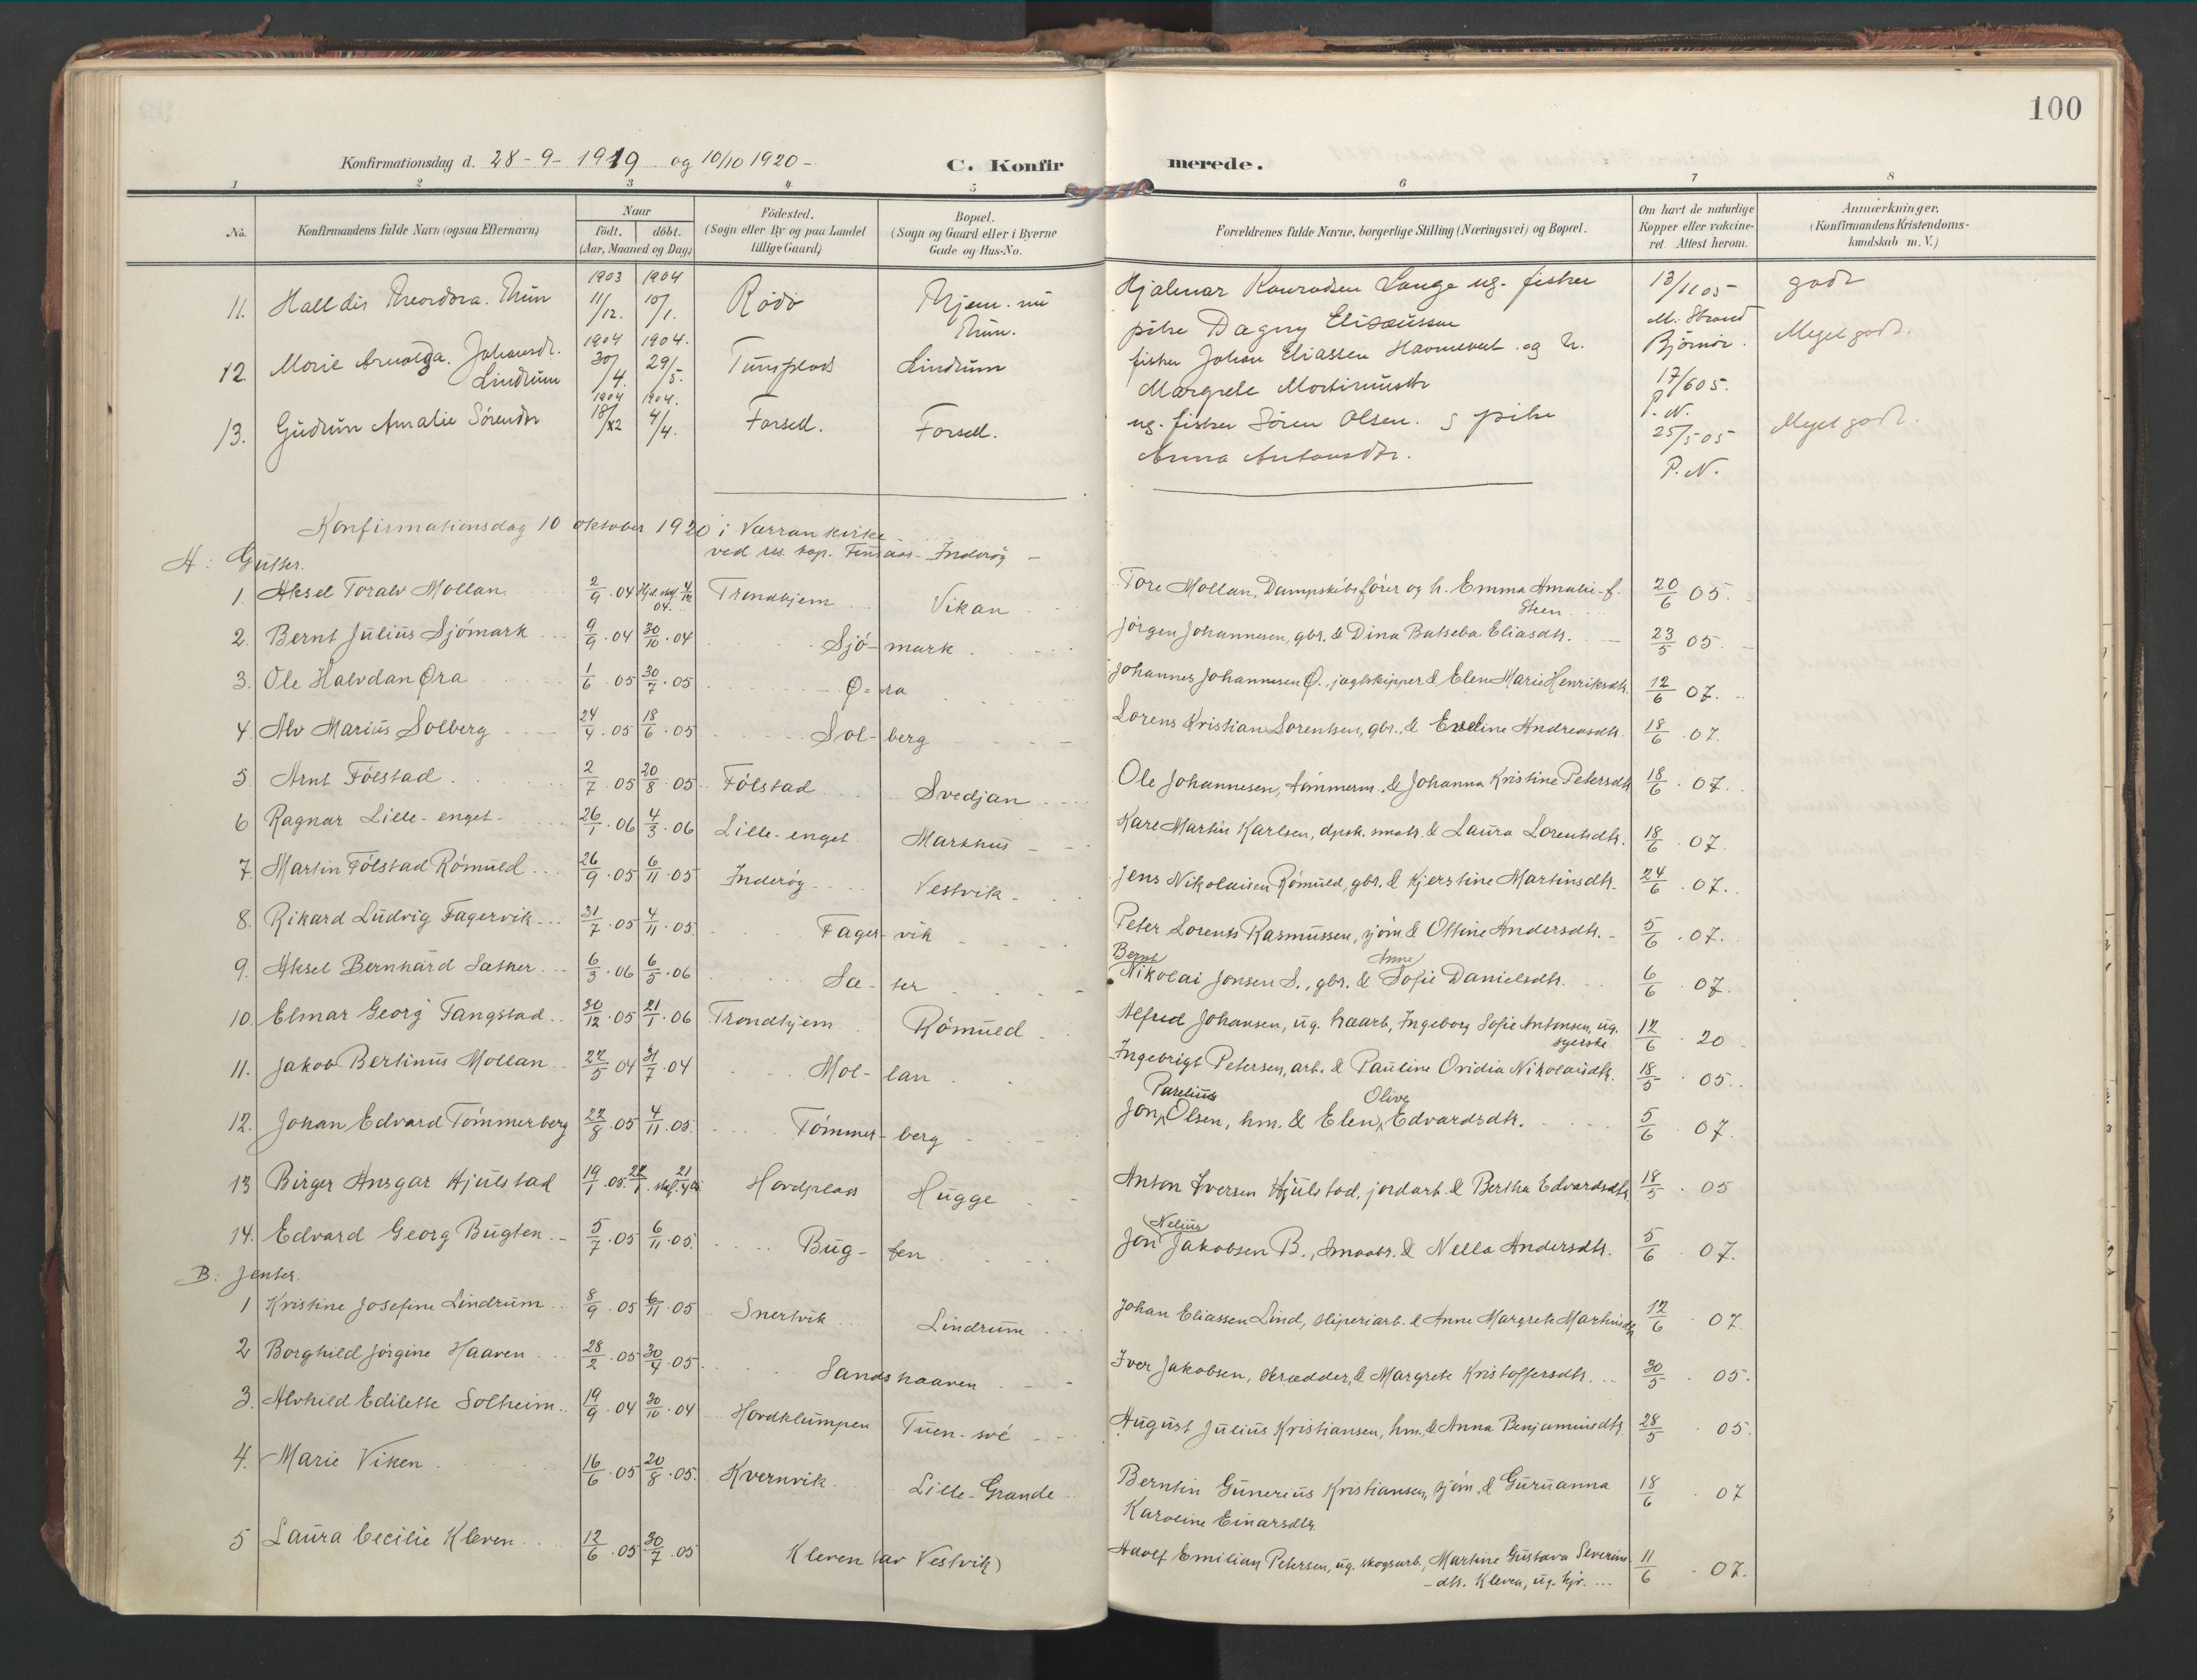 100
Konfirmationsdag d. 28-9-1919 og 10/10 1920 -
C. Konfirmerede.
1 2 3 4 5 6 7 8
No. Konfirmandens fulde Navn (ogsaa Efternavn) Naar födt. döbt. (Aar, Maaned og Dag) Födested. (Sogn eller By og paa Landet tillige Gaard) Bopæl. (Sogn og Gaard eller i Byerne Gade og Hus-No. Forældrenes fulde Navne, borgerlige Stilling (Næringsvei) og Bopæl. Om havt de naturlige Kopper eller vakcineret. Attest herom. Anmærkninger. (Konfirmandens Kristendomskundskab m. V.)
11. Halldis Theordora. Thun 1903 11/12. 1904 10/1. Rödö Hjem. nu Thun. Hjalmar Konradsen Lange ug. fisker
pike Dagny Elisæussen 13/11 05 M. Strand Björnör. godt
12. Marie Arnolda. Johansdr. Lindrum 1904 30/4. 1904. 29/5. Tunsplads Lindrum fisker Johan Eliassen og h.
Margrete Martinusdtr 17/6 05. P. N. Meget godt.
13. Gudrun Amalie Sørensdtr 1904 18/2 1904. 4/4. Forsell. Forsell. ug. fisker Sören Olsen. g pike
Anna Antonsdtr. 25/5 05 P. N. Meget godt.
Konfirmationsdag 10 oktober 1920 i Værran kirke
ved res. kap. Finsaas - Inderöy -
A: Gutter.
1. Aksel Toralv Mollan 2/9 .04 Hjd. stdf. 4/12 04. Trondhjem Vikan Tore Mollan, Dampskibsförer og h. Emma Amalie f. Steen 20/6 05.
2. Bernt Julius Sjömark 9/9 .04 30/10 .04 Sjö-mark Jörgen Johannesen, gbr. & Dina Batseba Eliasdtr. 23/5 05.
3. Ole Halvdan Øra 1/6 05 30/7 .05 Ø-ra Johannes Johannesen Ø., jægtskipper & Elen Marie Henriksdtr. 12/6 07.
4. Alv Marius Solberg 24/4 .05 18/6 .05 Sol-berg Lorens Kristian Lorentsen, gbr. & Eveline Andreasdtr. 18/6 .07.
5 Arnt Fölstad 2/7 .05 20/8 .05 Fölstad Svedjan Ole Johannesen, tömmerm. & Johanna Kristine Petersdtr 18/6 . 07.
6 Ragnar Lille-enget 26/1 .06 4/3 .06 Lille-enget Markhus Karl Martin Karlsen, dpsk. matr. & Laura Lorentsdtr. 18/6 . 07.
7. Martin Fölstad Römuld 26/9 .05 6/11 .05 Inderöy Vestvik Jens Nikolaisen Römuld, gbr. & Kjerstine Martinsdtr. 24/6 . 07.
8. Rikard Ludvig Fagervik 31/7 .05 4/11 .05. Fager-vik Peter Lorents Rasmussen, sjöm. & Oltine Andersdtr. 5/6 . 07.
9. Aksel Bernhard Sæther 6/3 .06 6/5 .06 Sæ-ter Bernt Nikolai Jonsen S., gbr. & Anne Sofie Danielsdtr. 6/6 . 07.
10. Elmar Georg Tangstad 30/12 .05 21/1 .06 Trondhjem Römuld Alfred Johansen, ug. haarb, Ingeborg Sofie Antonsen, ug. syerske 12/6 . 20
11. Jakob Bertinus Mollan 22/5 04 31/7 .04 Mol-lan Ingebrigt Petersen, arb. & Pauline Ovidia Nikolaisdtr. 18/5 . 05.
12. Johan Edvard Tömmerberg 22/8 .05 4/11 .05. Tömmer-berg Jon Parelius Olsen, hm. & Elen Olive Edvardsdtr. 5/6 . 07.
13 Birger Ansgar Hjulstad 19/1 .05. 22/1 stdf. 21/4 Hovdplass Hugge Anton Iversen Hjulstad, jordarb. & Bertha Edvardsdtr 18/5 . 05
14. Edvard Georg Bugten 5/7 .05 6/11 .05. Bug-ten Jon Nelius Jakobsen B., smaabr. & Nella Andersdtr. 5/6 . 07.
B: Jenter.
1 Kristine Josefine Lindrum 8/9 .05 6/11 .05 Snertvik Lindrum Johan Eliassen Lind, sliperiarb. & Anne Margrete Martinsdtr 12/6 . 07.
2 Borghild Jörgine Haaven 28/2 .05 30/4 .05. Sandshaaven Iver Jakobsen, skrædder, & Margrete Kristoffersdtr. 30/5 . 05.
3. Alvhild Edilette Solheim 19/9 .04 30/10 .04 Hovdklumpen Tuen-své August Julius Kristiansen, hm. & Anna Benjaminsdtr. 28/5 . 05.
4. Marie Viken 16/6 .05 20/8 .05. Kvernvik Lille-Grande Berntin Gunerius Kristiansen, sjöm. & Guruanna
Karoline Einarsdtr. 18/6 . 07
5 Laura Cecilie Kleven 12/6 .05 30/7 .05 Kleven (av Vestvik) Adolf Emilian Petersen, ug. skogsarb, Martine Gustava Severins-
dtr. Kleven, ug. hjr. 11/6 . 07.